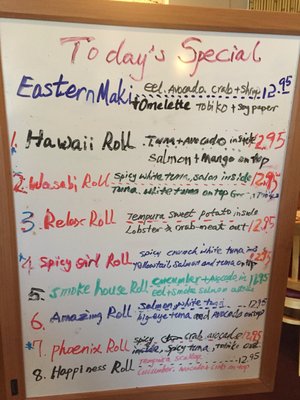 Today's Special
Eastern Maki eel. Avocado crab + Shrip 12.95
+ Omelette Tobiko + Soy paper
1. Hawaii Roll Tuna + Avocado inside 12.95
Salmon + Mango on top
2. Wasabi Roll Spicy white tuna, salon inside 12.95
Tuna. white tuna on top
3. Relax Roll Tempura sweet potato inside 12.95
Lobster & crab meat out
4. Spicy girl Roll Spicy crunch white tuna, ins 12.95
Yellowtail, salmon and tuna on top
5. Smoke house Roll Cucumber + Avocado in 12.95
eel + Smoke salmon
6. Amazing Roll salmon, white tuna 12.95
big eye tuna and Avocado on top
7. Phoenix Roll spicy crab avocado 12.95
inside, spicy tuna, Tobiko
8. Happiness Roll Tempura scallop 12.95
Cucumber, avocado & crab on top